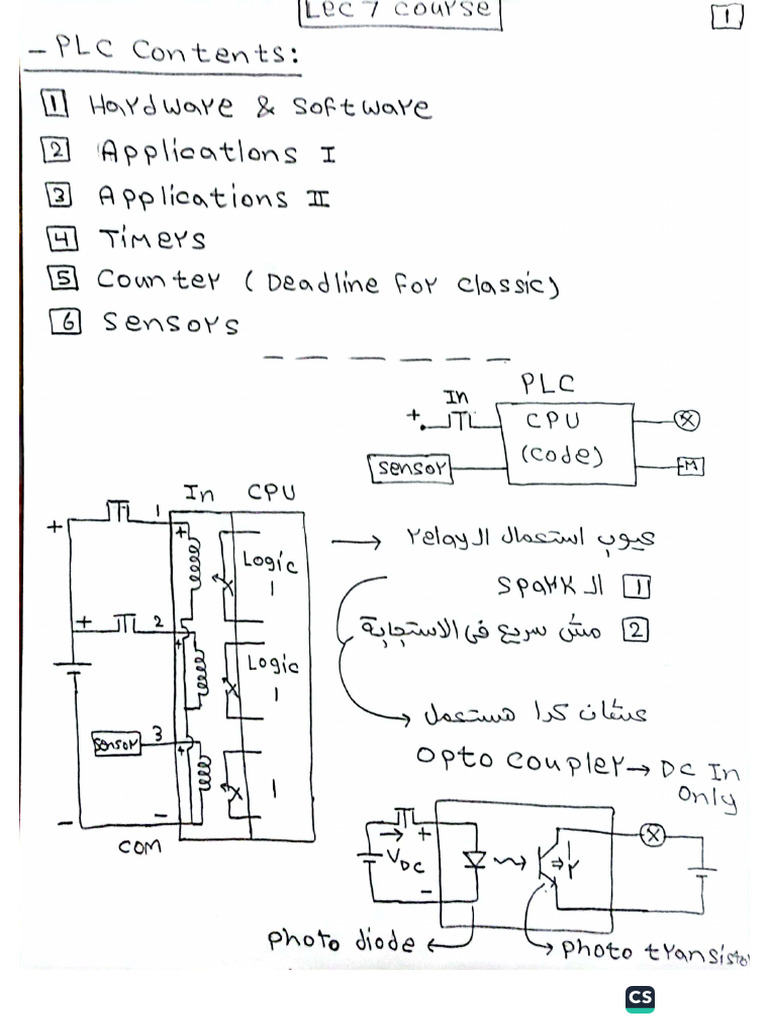 Lec 7 course
1
- PLC Contents:
1 Hardware & Software
2 Applications I
3 Applications II
4 Timers
5 Counter (Deadline for classic)
6 Sensors
PLC
In
+
CPU
(Code)
Sensor
M
In CPU
+ 1
+
Logic
1
عيوب استعمال ال relay
1 ال spark
+ 2
+
Logic
1
2 مش سريع في الاستجابة
Sensor 3
+
1
عشان كدا هستعمل
Opto coupler → DC In
Only
- -
COM
+
VDC
-
photo diode
photo transistor
CS